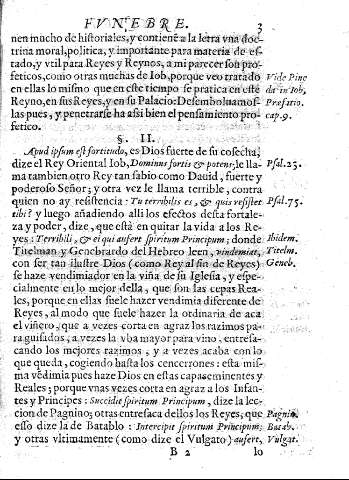 FVNEBRE. 3
nen mucho de historiales, y contienẽ a la letra vna doc-
trina moral, politica, y importante para materia de es-
tado, y vtil para Reyes y Reynos, a mi parecer son pro-
feticos, como otras muchas de Iob, porque veo tratado
en ellas lo mismo que en este tiempo se pratica en este Vide Pine
Reyno, en sus Reyes, y en su Palacio: Desemboluamos- da in Iob,
las pues, y penetrarse ha assi bien el pensamiento pro- Præfatio.
fetico. cap. 9.
§. II.
Apud ipsum est fortitudo, es Dios fuerte de su cosecha,
dize el Rey Oriental Iob, Dominus fortis & potens, le lla- Psal. 23.
ma tambien otro Rey tan sabio como Dauid, fuerte y
poderoso Señor; y otra vez le llama terrible, contra
quien no ay resistencia: Tu terribilis es, & quis resistet Psal. 75.
tibi? y luego añadiendo alli los efectos desta fortale-
za y poder, dize, que está en quitar la vida a los Re-
yes: Terribili, & ei qui aufert spiritum Principum; donde Ibidem.
Titelman y Genebrardo del Hebreo leen, vindemiat, Titelm.
con ser tan ilustre Dios (como Rey al fin de Reyes) Geneb.
se haze vendimiador en la viña de su Iglesia, y espe-
cialmente en lo mejor della, que son las cepas Rea-
les, porque en ellas suele hazer vendimia diferente de
Reyes, al modo que suele hazer la ordinaria de aca
el viñero, que a vezes corta en agraz los razimos pa-
ra guisados, a vezes la vba mayor para vino, entresa-
cando los mejores razimos, y a vezes acaba con lo
que queda, cogiendo hasta los cencerrones: esta mis-
ma vẽdimia pues haze Dios en estas capas eminentes y
Reales; porque vnas vezes corta en agraz a los Infan-
tes y Principes: Succidit spiritum Principum, dize la lec-
cion de Pagnino; otras entresaca dellos los Reyes, que Pagnin.
esso dize la de Batablo: Intercipit spiritum Principum; Batab.
y otras vltimamente (como dize el Vulgato) aufert, Vulgat.
B 2 lo